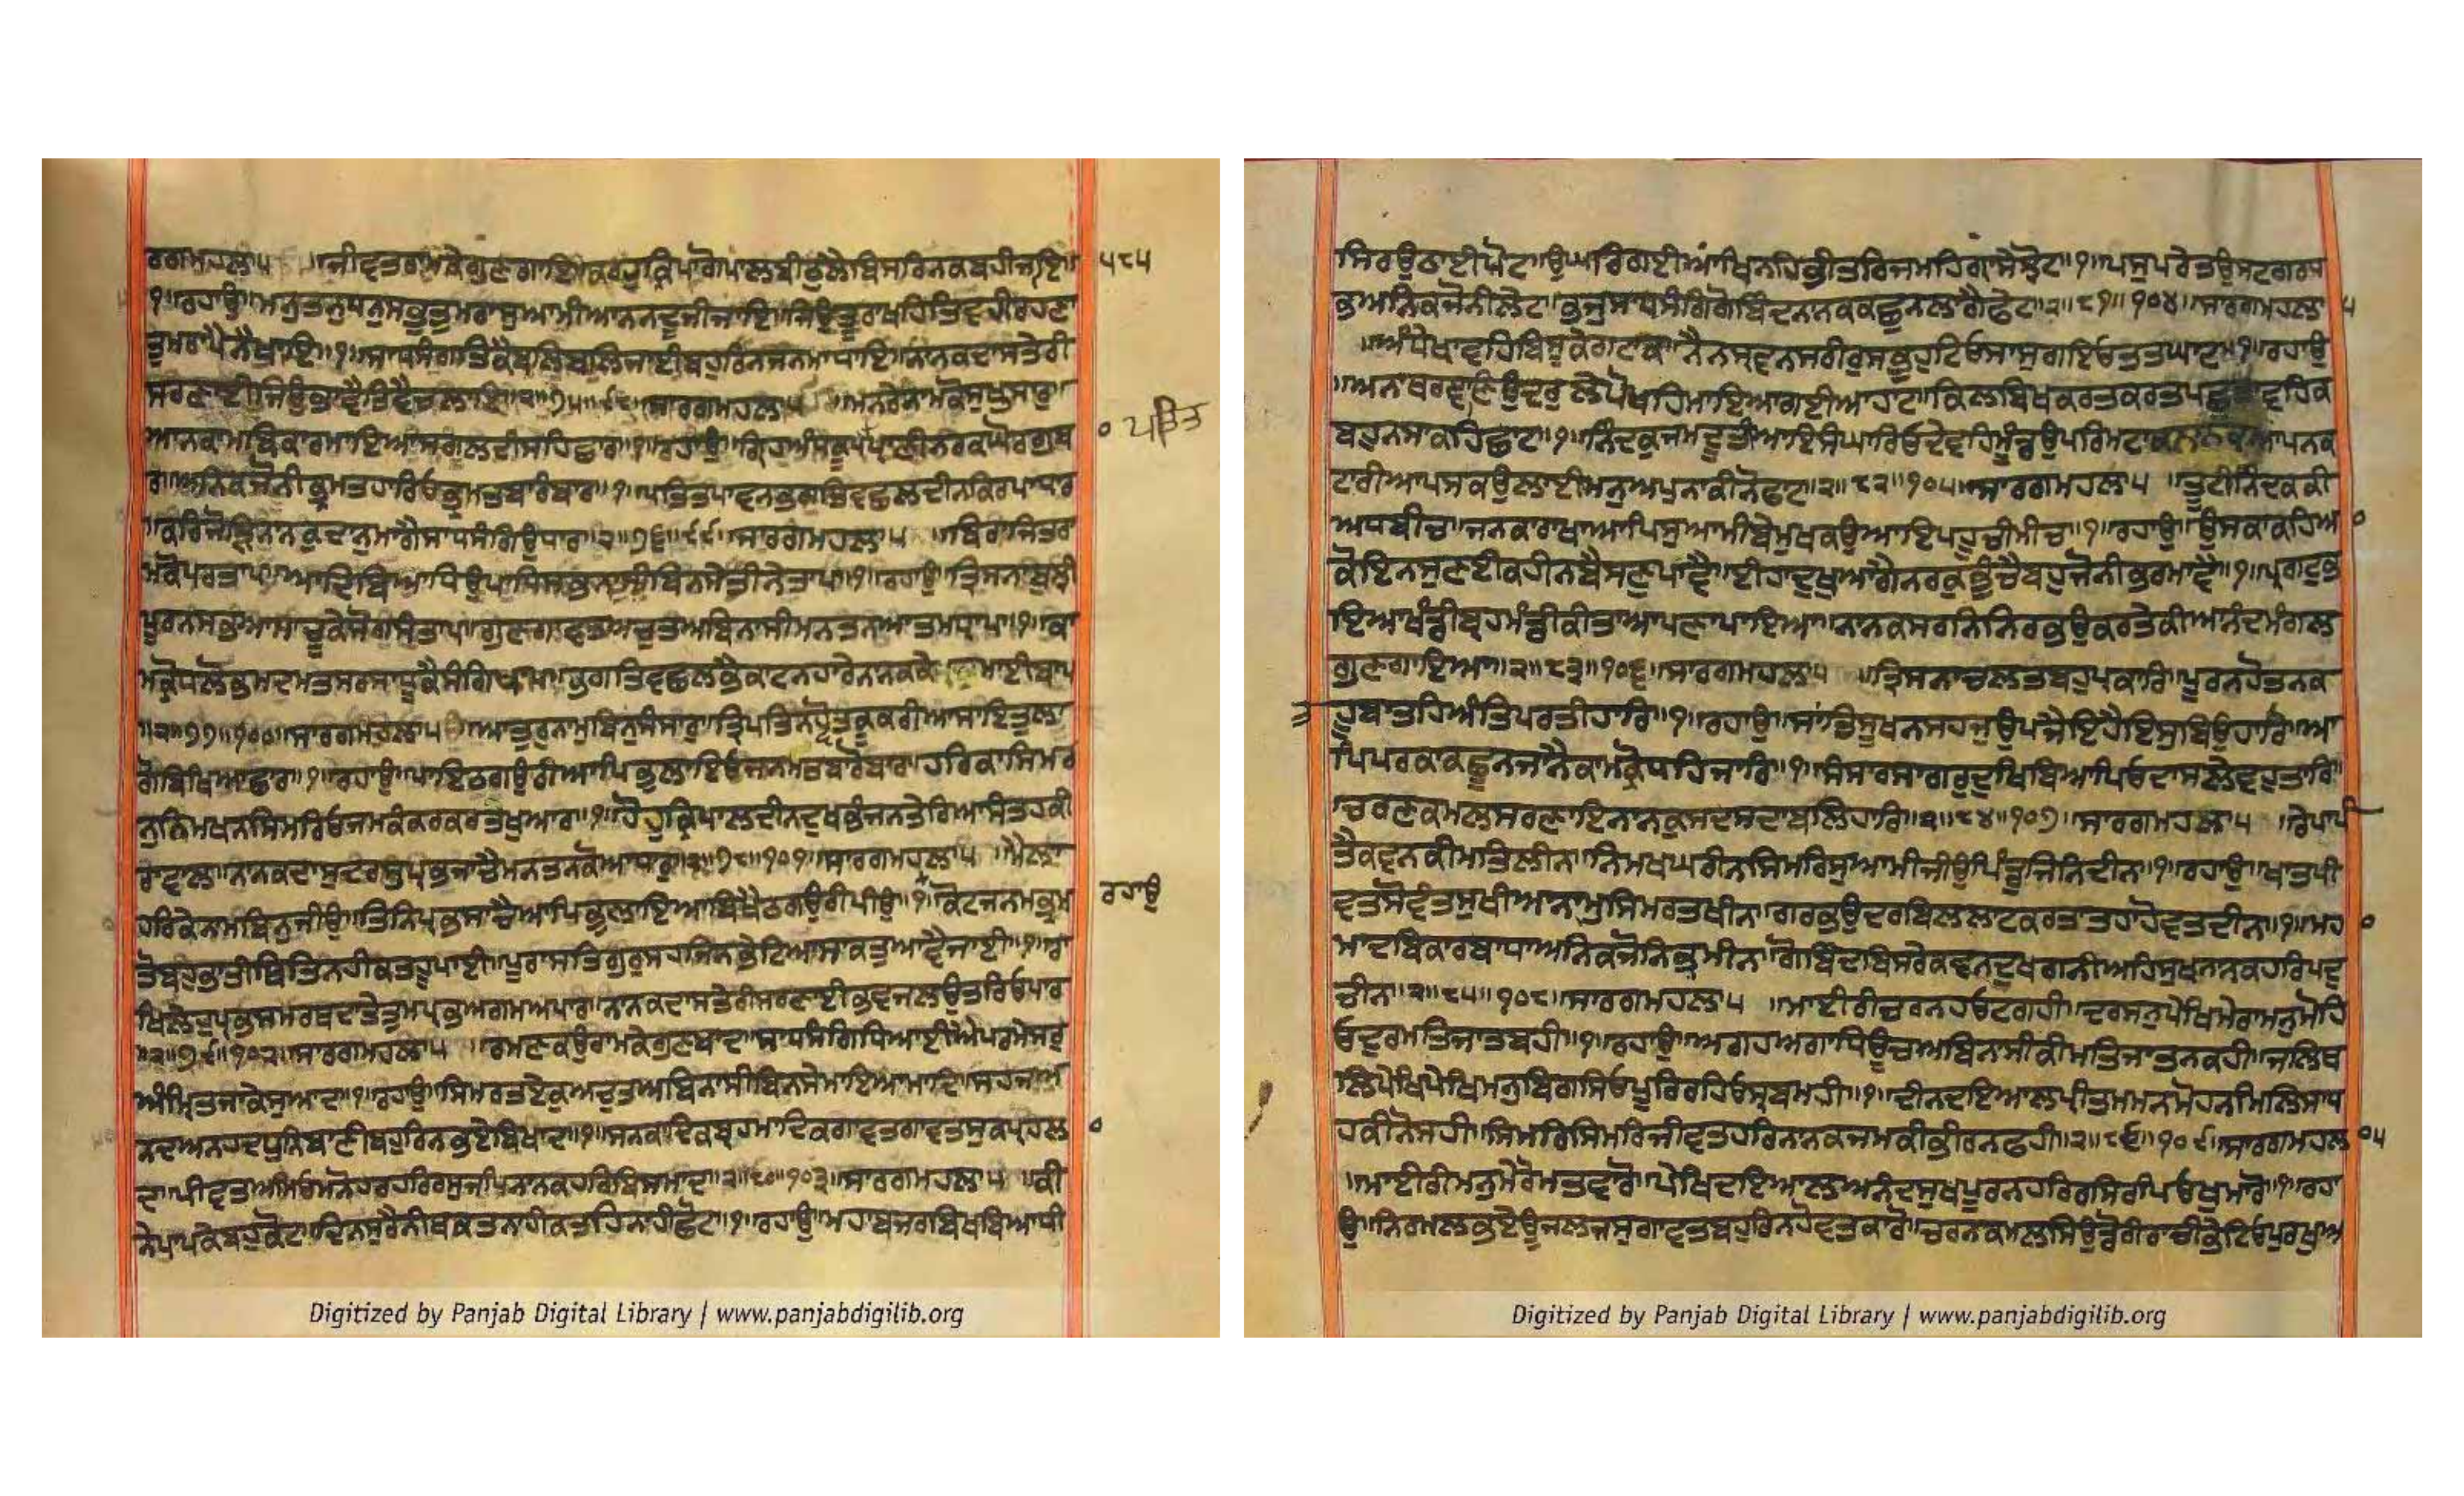 ਰਗਮਹਲਾ੫ ॥ਜੀਵਤੁਰਾਮਕੇਗੁਣਗਾਇ॥ਕਰਹੁਕ੍ਰਿਪਾਗੋਪਾਲਬੀਠੁਲੇਬਿਸਰਿਨਕਬਹੀਜਾਇ॥ ੫੮੫
੧॥ਰਹਾਉ॥ਮਨੁਤਨੁਧਨੁਸਭੁਤੁਮਰਾਸੁਆਮੀਆਨਨਦੂਜੀਜਾਇ॥ਜਿਉਤੂਰਾਖਹਿਤਿਵਹੀਰਹਣਾ
ਤੁਮਰਾਪੈਨੈਖਾਇ॥੧॥ਸਾਧਸੰਗਤਿਕੈਬਲਿਬਲਿਜਾਈਬਹੁਰਿਨਜਨਮਾਧਾਇ॥ਨਾਨਕਦਾਸਤੇਰੀ
ਸਰਣਾਈਜਿਉਭਾਵੈਤਿਵੈਚਲਾਇ॥੨॥੭੫॥੯੮॥ਸਾਰਗਮਹਲਾ੫ ॥ਮਨਰੇਨਾਮਕੋਸੁਖਸਾਰ॥
ਆਨਕਾਮਬਿਕਾਰਮਾਇਆਸਗਲਦੀਸਹਿਛਾਰ॥੧॥ਰਹਾਉ॥ਗ੍ਰਿਹਅੰਧਕੂਪਪਤਿਤਪ੍ਰਾਣੀਨਰਕਘੋਰਗੁਬਾ
ਰ॥ਅਨਿਕਜੋਨੀਭ੍ਰਮਤਹਾਰਿਓਭ੍ਰਮਤਬਾਰੰਬਾਰ॥੧॥ਪਤਿਤਪਾਵਨਭਗਤਿਵਛਲਦੀਨਕਿਰਪਾਧਾਰ
॥ਕਰਜੋੜਿਨਾਨਕੁਦਾਨੁਮਾਗੈਸਾਧਸੰਗਿਉਧਾਰ॥੨॥੭੬॥੯੯॥ਸਾਰਗਮਹਲਾ੫ ॥ਬਿਰਾਜਿਤਰਾ
ਮਕੋਪਰਤਾਪ॥ਆਧਿਬਿਆਧਿਉਪਾਧਿਸਭਨਾਸੀਬਿਨਸੇਤੀਨੈਤਾਪ॥੧॥ਰਹਾਉ॥ਤ੍ਰਿਸਨਾਬੁਝੀ
ਪੂਰਨਸਭਆਸਾਚੂਕੇਸੋਗਸੰਤਾਪ॥ਗੁਣਗਾਵਤਅਚੁਤਅਬਿਨਾਸੀਮਨਤਨਆਤਮਧ੍ਰਾਪ॥੧॥ਕਾ
ਮਕ੍ਰੋਧਲੋਭਮਦਮਤਸਰਸਾਧੂਕੈਸੰਗਿਖਾਪ॥ਭਗਤਿਵਛਲਭੈਕਾਟਨਹਾਰੇਨਾਨਕਕੇ ਮਾਈਬਾਪ
॥੨॥੭੭॥੧੦੦॥ਸਾਰਗਮਹਲਾ੫ ॥ਆਤੁਰੁਨਾਮਬਿਨੁਸੰਸਾਰ॥ਤ੍ਰਿਪਤਿਨਹੋਵਤਕੂਕਰੀਆਸਾਇਤੁਲਾ
ਗੋਬਿਖਿਆਛਾਰ॥੧॥ਰਹਾਉ॥ਪਾਇਠਗਉਰੀਆਪਿਭੁਲਾਇਓਜਨਮਤਬਾਰੋਬਾਰ॥ਹਰਿਕਾਸਿਮਰ
ਨੁਨਿਮਖਨਸਿਮਰਿਓਜਮਕੰਕਰਕਰਤਖੁਆਰ॥੧॥ਹੋਹੁਕ੍ਰਿਪਾਲਦੀਨਦੁਖਭੰਜਨਤੇਰਿਆਸੰਤਹਕੀ
ਰਾਵਾਲ॥ਨਾਨਕਦਾਸੁਦਰਸੁਪ੍ਰਭਜਾਚੈਮਨਤਨਕੋਆਧਾਰ॥੨॥੭੮॥੧੦੧॥ਸਾਰਗਮਹਲਾ੫ ॥ਮੈਲਾ
ਹਰਿਕੇਨਾਮਬਿਨੁਜੀਉ॥ਤਿਨਿਪ੍ਰਭਸਾਚੈਆਪਿਭੁਲਾਇਆਬਿਖੈਠਗਉਰੀਪੀਉ॥੧॥ਕੋਟਿਜਨਮਭ੍ਰਮ ਰਹਾਉ
ਤੋਬਹੁਭਾਤੀਥਿਤਿਨਹੀਕਤਹੂਪਾਈ॥ਪੂਰਾਸਤਿਗੁਰੁਸਹਜਿਨਭੇਟਿਆਸਾਕਤੁਆਵੈਜਾਈ॥੧॥ਰਾ
ਖਿਲੇਹੁਪ੍ਰਭਸੰਮਰਥਦਾਤੇਤੁਮਪ੍ਰਭਅਗਮਅਪਾਰ॥ਨਾਨਕਦਾਸਤੇਰੀਸਰਣਾਈਭਵਜਲਉਤਰਿਓਪਾਰ
॥੨॥੭੯॥੧੦੨॥ਸਾਰਗਮਹਲਾ੫ ॥ਰਮਣਕਉਰਾਮਕੇਗੁਣਬਾਦ॥ਸਾਧਸੰਗਿਧਿਆਈਐਪਰਮੇਸਰੁ
ਅੰਮ੍ਰਿਤਜਾਕੇਸੁਆਦ॥੧॥ਰਹਾਉ॥ਸਿਮਰਤਏਕੁਅਚੁਤਅਬਿਨਾਸੀਬਿਨਸੇਮਾਇਆਮਾਦਿ॥ਸਹਜਅ
ਨਦਅਨਹਦਧੁਨਿਬਾਣੀਬਹੁਰਿਨਭਏਬਿਖਾਦ॥੧॥ਸਨਕਾਦਿਕਬ੍ਰਹਮਾਦਿਕਗਾਵਤਗਾਵਤਸੁਕਪ੍ਰਹਲਾ
ਦ॥ਪੀਵਤਅਮਿਓਮਨੋਹਰਹਰਿਰਸੁਜਪਿਨਾਨਕਹਰਿਬਿਸਮਾਦ॥੨॥੮੦॥੧੦੩॥ਸਾਰਗਮਹਲਾ੫ ॥ਕੀ
ਨੇਪਾਪਕੇਬਹੁਕੋਟ॥ਦਿਨਸੁਰੈਨੀਥਕਤਨਾਹੀਕਤਹਿਨਾਹੀਛੋਟ॥੧॥ਰਹਾਉ॥ਮਹਾਬਜਰਬਿਖਬਿਆਧੀ
ਸਿਰਉਠਾਈਪੋਟ॥ਉਘਰਿਗਈਆਂਖਿਨਹਿਭੀਤਰਿਜਮਹਿਗ੍ਰਾਸੈਝੋਟ॥੧॥ਪਸੁਪਰੇਤਉਸਟਗਰਧ
ਭਅਨਿਕਜੋਨੀਲੇਟ॥ਭਜੁਸਾਧਸੰਗਿਗੋਬਿੰਦਨਾਨਕਕਛੁਨਲਾਗੈਫੇਟ॥੨॥੮੧॥੧੦੪॥ਸਾਰਗਮਹਲਾ ੫
॥ਅੰਧੇਖਾਵਹਿਬਿਸੂਕੇਗਟਾਕ॥ਨੈਨਸ੍ਰਵਨਸਰੀਰੁਸਭੁਹੁਟਿਓਸਾਸੁਗਇਓਤਤਘਾਟ॥੧॥ਰਹਾਉ
॥ਅਨਾਥਰਞਾਣਿਉਦਰੁਲੇਪੋਖਹਿਮਾਇਆਗਈਆਹਾਟ॥ਕਿਲਬਿਖਕਰਤਕਰਤਪਛੁਤਾਵਹਿਕ
ਬਹੁਨਸਾਕਹਿਛਾਟ॥੧॥ਨਿੰਦਕੁਜਮਦੂਤੀਆਇਸੰਘਾਰਿਓਦੇਵਹਿਮੂੰਡਉਪਰਿਮਟਾਕ॥ਨਾਨਕਆਪਨਕ
ਟਾਰੀਆਪਸਕਉਲਾਈਮਨੁਅਪਨਾਕੀਨੋਫਾਟ॥੨॥੮੨॥੧੦੫॥ਸਾਰਗਮਹਲਾ੫ ॥ਟੂਟੀਨਿੰਦਕਕੀ
ਅਧਬੀਚ॥ਜਨਕਾਰਾਖਾਆਪਿਸੁਆਮੀਬੇਮੁਖਕਉਆਇਪਹੂਚੀਮੀਚ॥੧॥ਰਹਾਉ॥ਉਸਕਾਕਹਿਆ
ਕੋਇਨਸੁਣਈਕਹੀਨਬੈਸਣੁਪਾਵੈ॥ਈਹਾਦੁਖੁਆਗੈਨਰਕੁਭੁੰਚੈਬਹੁਜੋਨੀਭਰਮਾਵੈ॥੧॥ਪ੍ਰਗਟੁਭ
ਇਆਖੰਡੀਬ੍ਰਹਮੰਡੀਕੀਤਾਆਪਣਾਪਾਇਆ॥ਨਾਨਕਸਰਣਿਨਿਰਭਉਕਰਤੇਕੀਅਨੰਦਮੰਗਲ
ਗੁਣਗਾਇਆ॥੨॥੮੩॥੧੦੬॥ਸਾਰਗਮਹਲਾ੫ ॥ਤ੍ਰਿਸਨਾਚਲਤਬਹੁਪ੍ਰਕਾਰਿ॥ਪੂਰਨਹੋਤਨਕ
ਹੁਬਾਤਹਿਅੰਤਿਪਰਤੀਹਾਰਿ॥੧॥ਰਹਾਉ॥ਸਾਂਤਿਸੂਖਨਸਹਜੁਉਪਜੈਇਹੈਇਸੁਬਿਉਹਾਰਿ॥ਆ
ਪਪਰਕਾਕਛੁਨਜਾਨੈਕਾਮਕ੍ਰੋਧਹਿਜਾਰਿ॥੧॥ਸੰਸਾਰਸਾਗਰੁਦੁਖਿਬਿਆਪਿਓਦਾਸਲੇਵਹੁਤਾਰਿ
॥ਚਰਣਕਮਲਸਰਣਾਇਨਾਨਕੁਸਦਸਦਾਬਲਿਹਾਰਿ॥੨॥੮੪॥੧੦੭॥ਸਾਰਗਮਹਲਾ੫ ॥ਰੇਪਾਪੀ
ਤੈਕਵਨਕੀਮਤਿਲੀਨ॥ਨਿਮਖਘਰੀਨਸਿਮਰਿਸੁਆਮੀਜੀਉਪਿੰਡੁਜਿਨਿਦੀਨ॥੧॥ਰਹਾਉ॥ਖਾਤਪੀ
ਵਤਸੋਵੰਤਸੁਖੀਆਨਾਮੁਸਿਮਰਤਖੀਨ॥ਗਰਭਉਦਰਬਿਲਲਾਟਕਰਤਾਤਹਾਹੋਵਤਦੀਨ॥੧॥ਮਹਾ
ਮਾਦਬਿਕਾਰਬਾਧਾਅਨਿਕਜੋਨਿਭ੍ਰਮੀਨ॥ਗੋਬਿੰਦਬਿਸਰੇਕਵਨਦੁਖਗਨੀਅਹਿਸੁਖਨਾਨਕਹਰਿਪਦੁ
ਚੀਨ॥੨॥੮੫॥੧੦੮॥ਸਾਰਗਮਹਲਾ੫ ॥ਮਾਈਰੀਚਰਨਹਓਟਗਹੀ॥ਦਰਸਨੁਪੇਖਿਮੇਰਾਮਨੁਮੋਹਿ
ਓਦੁਰਮਤਿਜਾਤਬਹੀ॥੧॥ਰਹਾਉ॥ਅਗਹਅਗਾਧਿਊਚਅਬਿਨਾਸੀਕੀਮਤਿਜਾਤਨਕਹੀ॥ਜਲਿਥ
ਲਿਪੇਖਿਪੇਖਿਮਨੁਬਿਗਸਿਓਪੂਰਿਰਹਿਓਸ੍ਰਬਮਹੀ॥੧॥ਦੀਨਦਇਆਲਪ੍ਰੀਤਮਮਨਮੋਹਨਮਿਲਿਸਾਧ
ਹਕੀਨੋਸਹੀ॥ਸਿਮਰਿਸਿਮਰਿਜੀਵਤਹਰਿਨਾਨਕਜਮਕੀਭੀਰਨਫਹੀ॥੨॥੮੬॥੧੦੯॥ਸਾਰਗਮਹਲਾ ੫
॥ਮਾਈਰੀਮਨੁਮੇਰੋਮਤਵਾਰੋ॥ਪੇਖਿਦਇਆਲਅਨੰਦਸੁਖਪੂਰਨਹਰਿਰਸਿਰਪਿਓਖੁਮਾਰੋ॥੧॥ਰਹਾ
ਉ॥ਨਿਰਮਲਭਇਓਉਜਲਜਸੁਗਾਵਤਬਹੁਰਿਨਹੋਵਤਕਾਰੋ॥ਚਰਨਕਮਲਸਿਉਡੋਰੀਰਾਚੀਭੇਟਿਓਪੁਰਖੁਅ
Digitized by Panjab Digital Library | www.panjabdigilib.org
Digitized by Panjab Digital Library | www.panjabdigilib.org